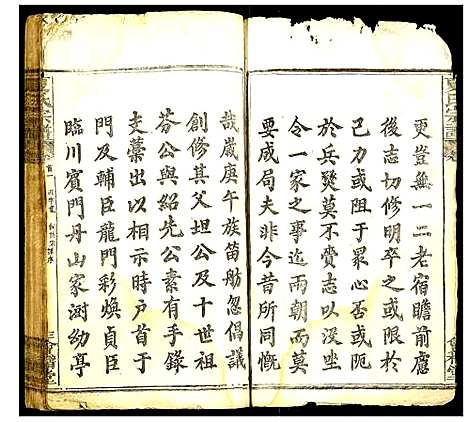 更豈無一二老宿瞻前慮
後志切修明卒之或限於
己力或阻于眾心否或阨
於兵燹莫不賫志以沒坐
令一家之事迄而朝而莫
要成局夫非今昔所同慨
哉歲庚午族笛舫忽倡議
創修其父坦公與十世祖
芬公與紹先公素有手錄
支藁出以相示時戶首于
門及輔臣龍門彩煥貞臣
臨川賓門丹山家澍幼亭
夏氏宗譜
卷首一
三
會稽堂
夏氏宗譜
會稽堂